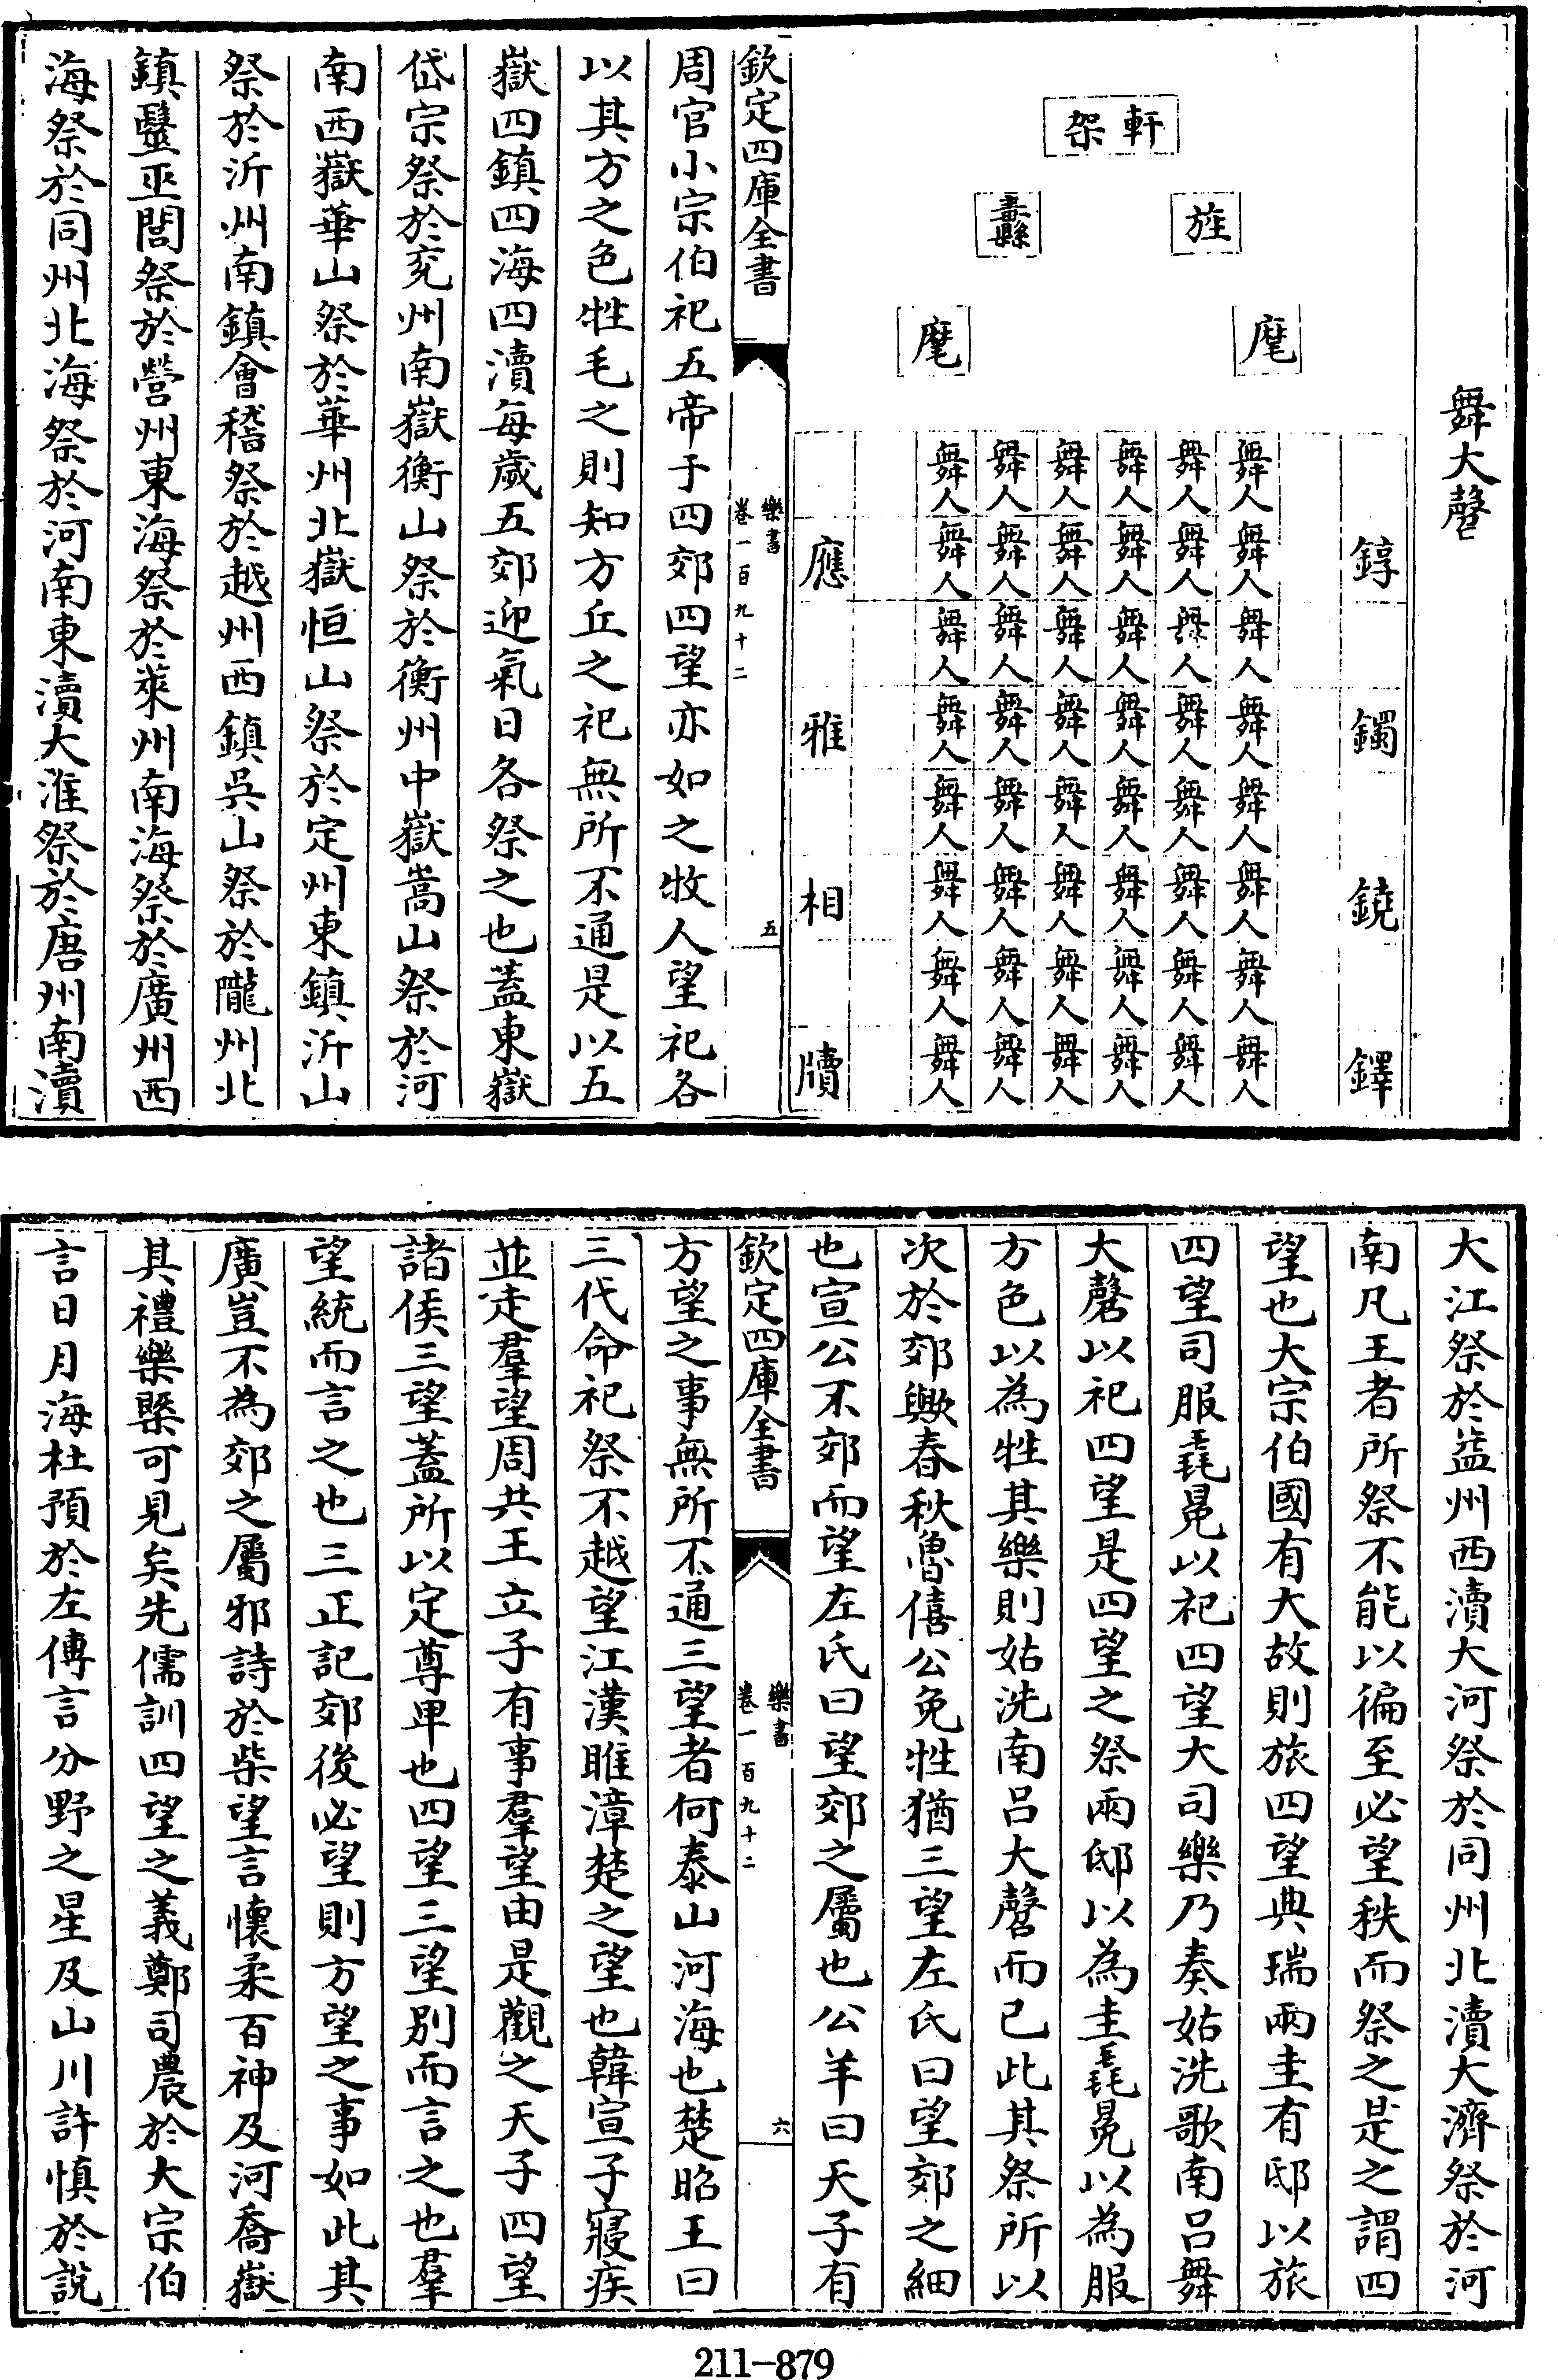 舞大㲈
軒架
旌
纛縣
麾
麾
錞 鐲 鐃 鐸
舞人 舞人 舞人 舞人 舞人 舞人 舞人 舞人
舞人 舞人 舞人 舞人 舞人 舞人 舞人 舞人
舞人 舞人 舞人 舞人 舞人 舞人 舞人 舞人
舞人 舞人 舞人 舞人 舞人 舞人 舞人 舞人
舞人 舞人 舞人 舞人 舞人 舞人 舞人 舞人
舞人 舞人 舞人 舞人 舞人 舞人 舞人 舞人
應 雅 相 牘
欽定四庫全書
樂書
卷一百九十二
五
周官小宗伯祀五帝于四郊四望亦如之牧人望祀各
以其方之色牲毛之則知方丘之祀無所不通是以五
嶽四鎮四海四瀆每歲五郊迎氣日各祭之也蓋東嶽
岱宗祭於兖州南嶽衡山祭於衡州中嶽嵩山祭於河
南西嶽華山祭於華州北嶽恒山祭於定州東鎮沂山
祭於沂州南鎮會稽祭於越州西鎮吳山祭於隴州北
鎮醫巫閭祭於營州東海祭於萊州南海祭於廣州西
海祭於同州北海祭於河南東瀆大淮祭於唐州南瀆
大江祭於益州西瀆大河祭於同州北瀆大濟祭於河
南凡王者所祭不能以徧至必望秩而祭之是之謂四
望也大宗伯國有大故則旅四望典瑞兩圭有邸以旅
四望司服毳冕以祀四望大司樂乃奏姑洗歌南呂舞
大磬以祀四望是四望之祭兩邸以為圭毳冕以為服
方色以為牲其樂則姑洗南呂大磬而已此其祭所以
次於郊歟春秋魯僖公免牲猶三望左氏曰望郊之細
也宣公不郊而望左氏曰望郊之屬也公羊曰天子有
欽定四庫全書
樂書
卷一百九十二
六
方望之事無所不通三望者何泰山河海也楚昭王曰
三代命祀祭不越望江漢睢漳楚之望也韓宣子寢疾
並走羣望周共王立子有事羣望由是觀之天子四望
諸侯三望蓋所以定尊卑也四望三望别而言之也羣
望統而言之也三正記郊後必望則方望之事如此其
廣豈不為郊之屬邪詩於柴望言懷柔百神及河喬嶽
其禮樂槩可見矣先儒訓四望之義鄭司農於大宗伯
言日月海杜預於左傳言分野之星及山川許慎於說
211-879